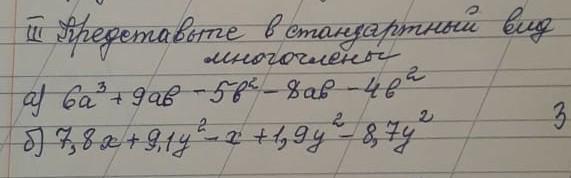 III Представьте в стандартный вид
многочлены
а) 6a³ + 9ab - 5b² - 8ab - 4b²
б) 7,8x + 9,1y² - x + 1,9y² - 8,7y²
3